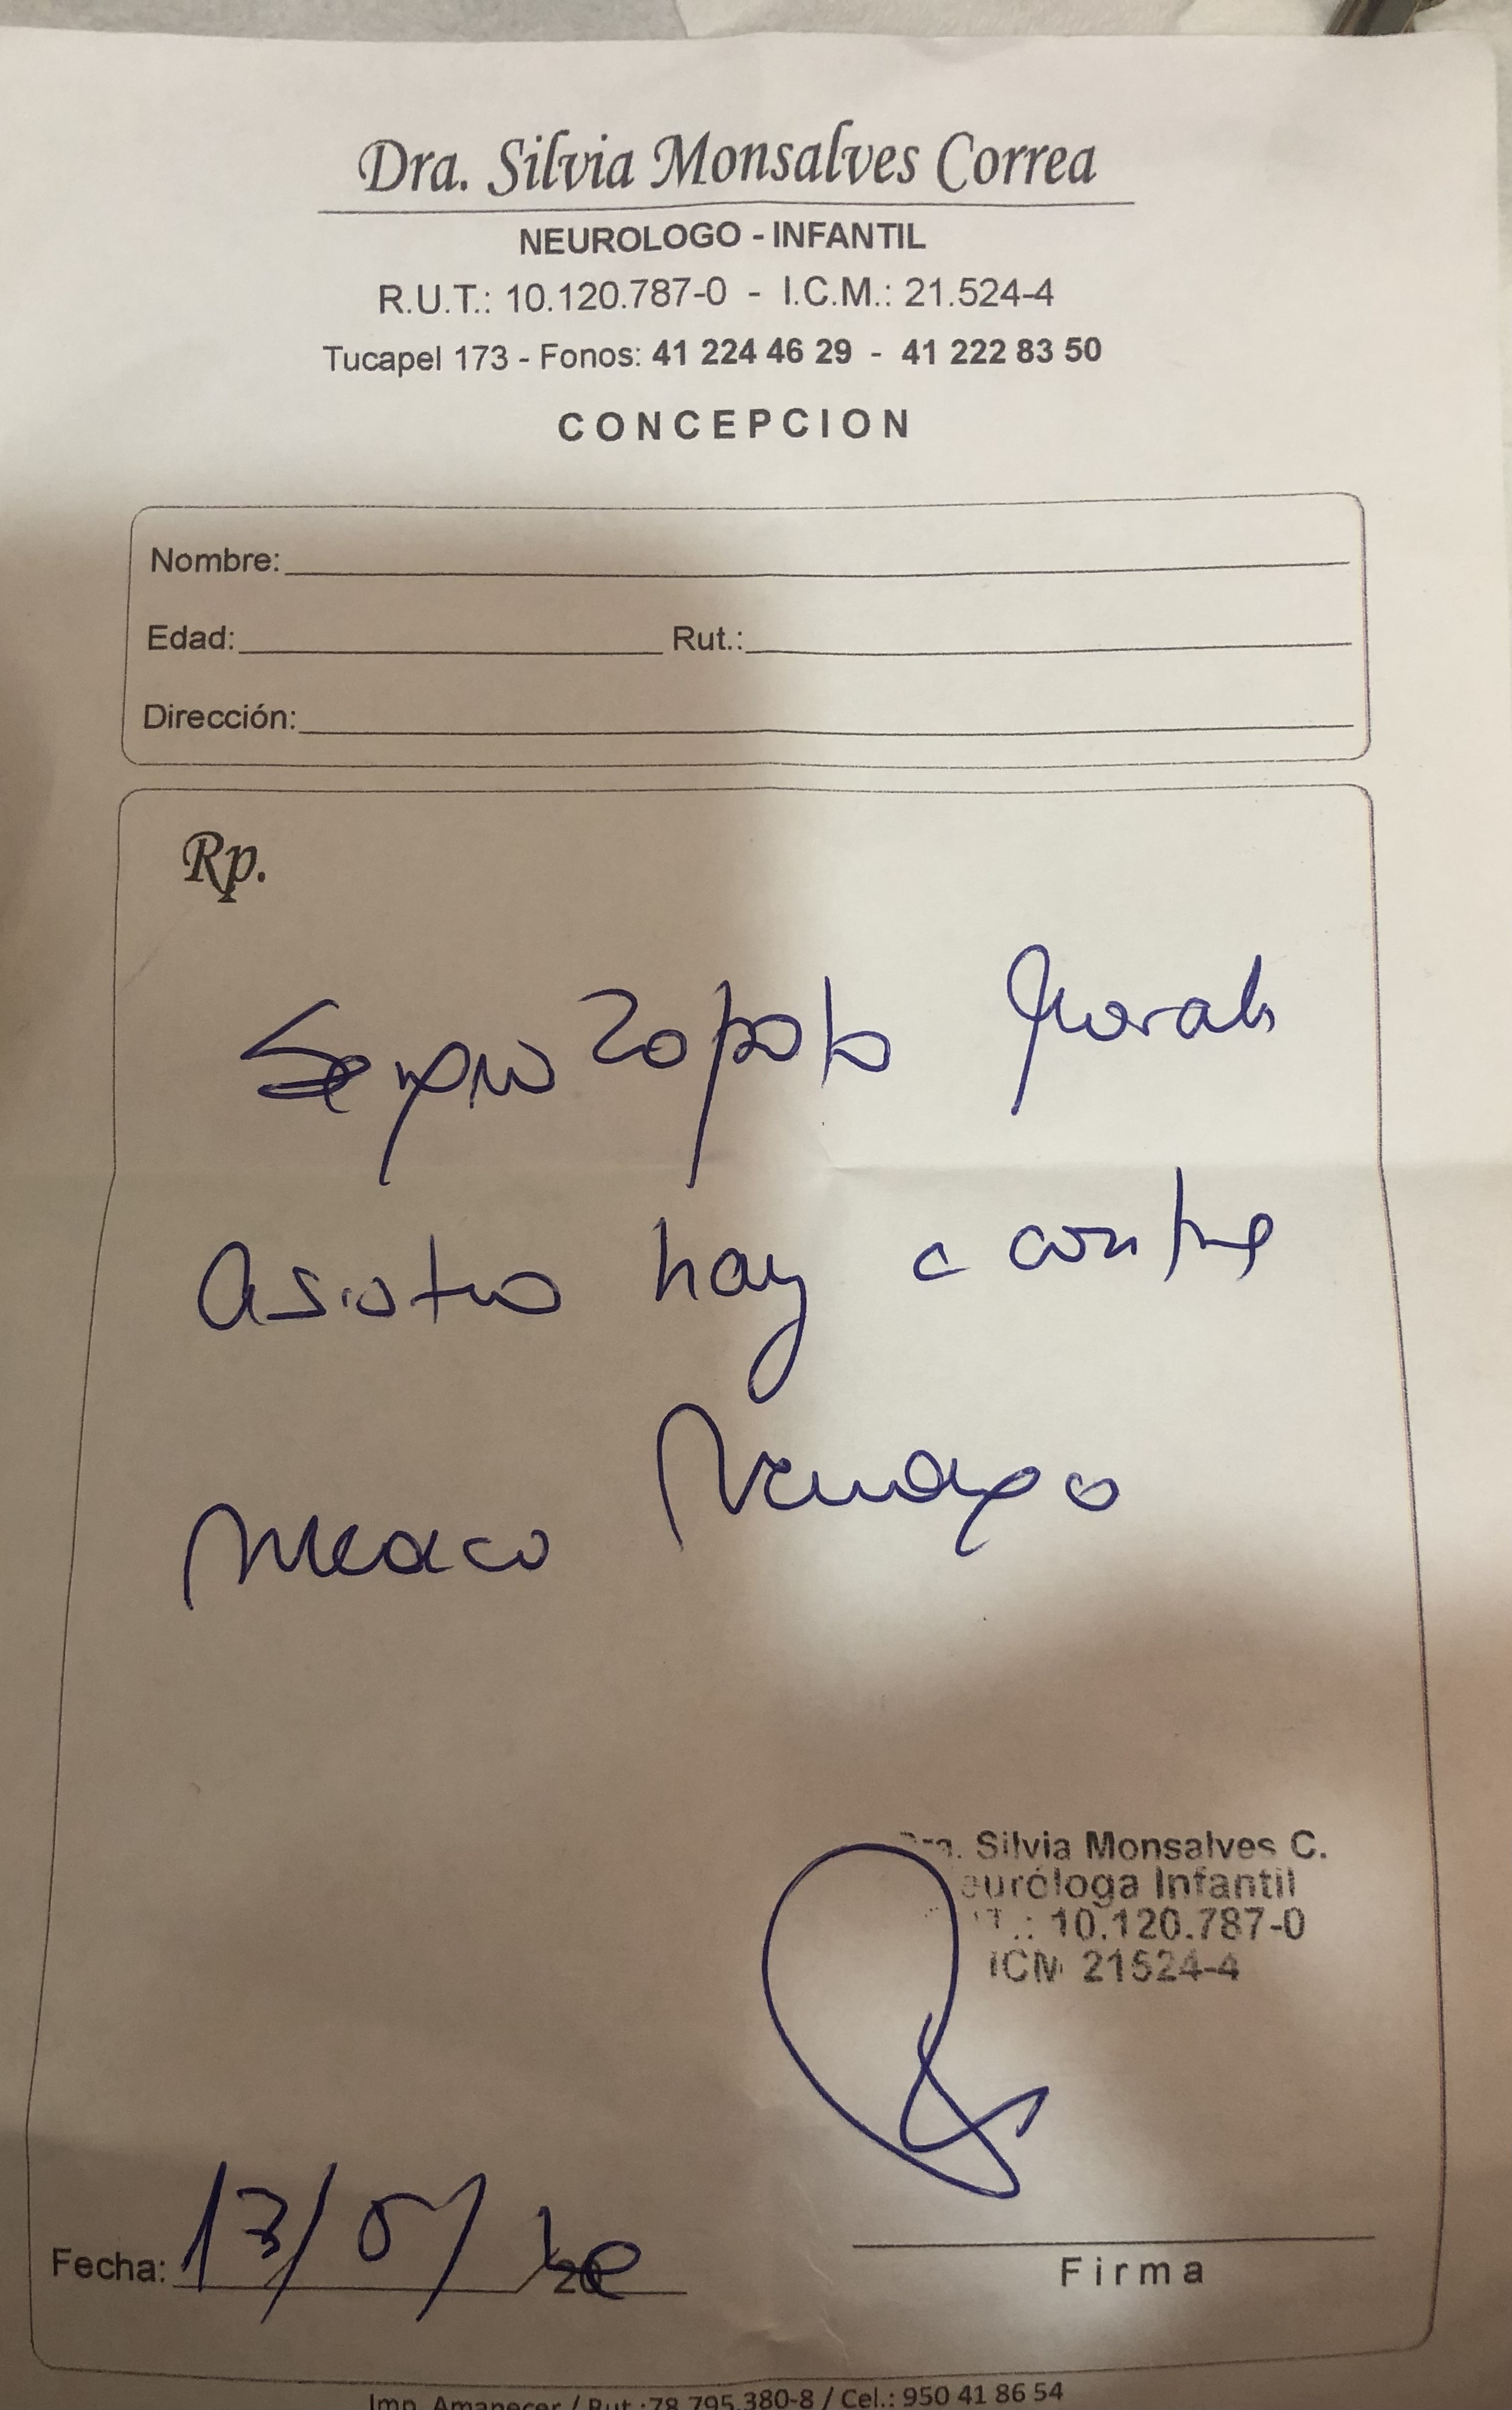 Dra. Silvia Monsalves Correa
NEUROLOGO - INFANTIL
R.U.T.: 10.120.787-0 - I.C.M.: 21.524-4
Tucapel 173 - Fonos: 41 224 46 29 - 41 222 83 50
CONCEPCION
Nombre:
Edad: Rut.:
Dirección:
Rp.
Zapata
asistio hoy a
Medico Neurologo
Silvia Monsalves C.
Infantil
10.120.787-0
21524-4
Fecha:
Firma
Imp. Amanecer / Rut.:78.795.380-8 / Cel.: 950 41 86 54